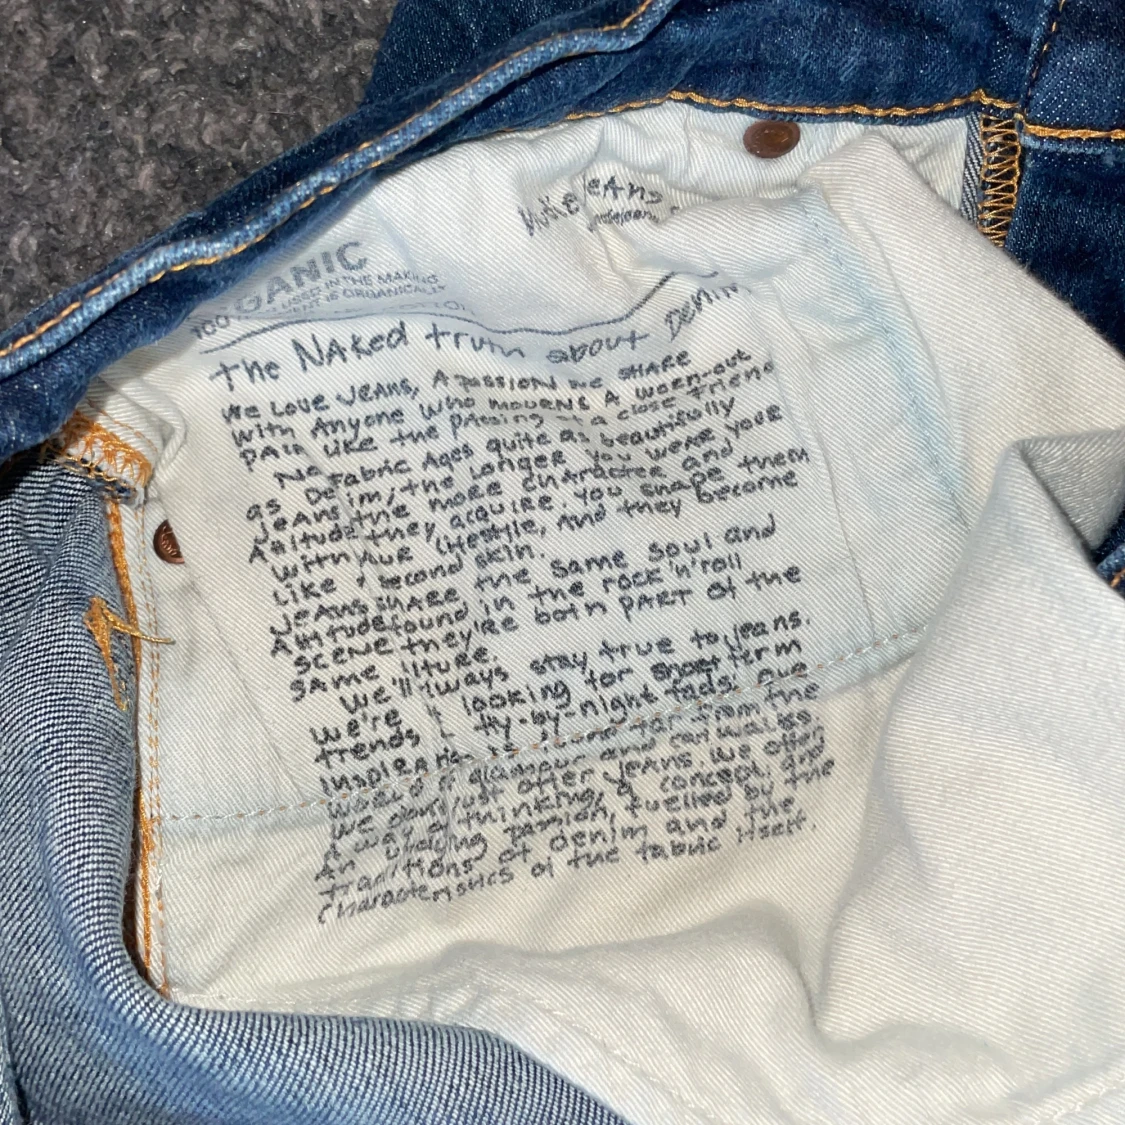 Nudie Jeans
ORGANIC
100
USED IN THE MAKING
IS ORGANICALLY
The NAKed truth about DENIM
WE LOVE JEANS, A PASSION WE SHARE
with Anyone Who MOURNS A WORN-OUT
PAIR LIKE the PASSING of a close friend
No fabric Ages quite as beautifully
as Denim, the Longer you wear your
Jeans the more character and
Attitude they acquire. You shape them
with your Lifestyle, and they become
Like a second skin.
Jeans SHARE the same soul and
Attitude found in the rock 'n' roll
SCENE they're both PART of the
SAME culture.
We'll always stay true to jeans.
We're looking for short term
trends fly-by-night fads. our
INSPIRAtion is found far from the
WORLD of glamour and catwalks.
We don't just offer jeans. We offer
A way of thinking, A concept, and
An undying passion, fuelled by the
traditions of denim and the
characteristics of the fabric itself.